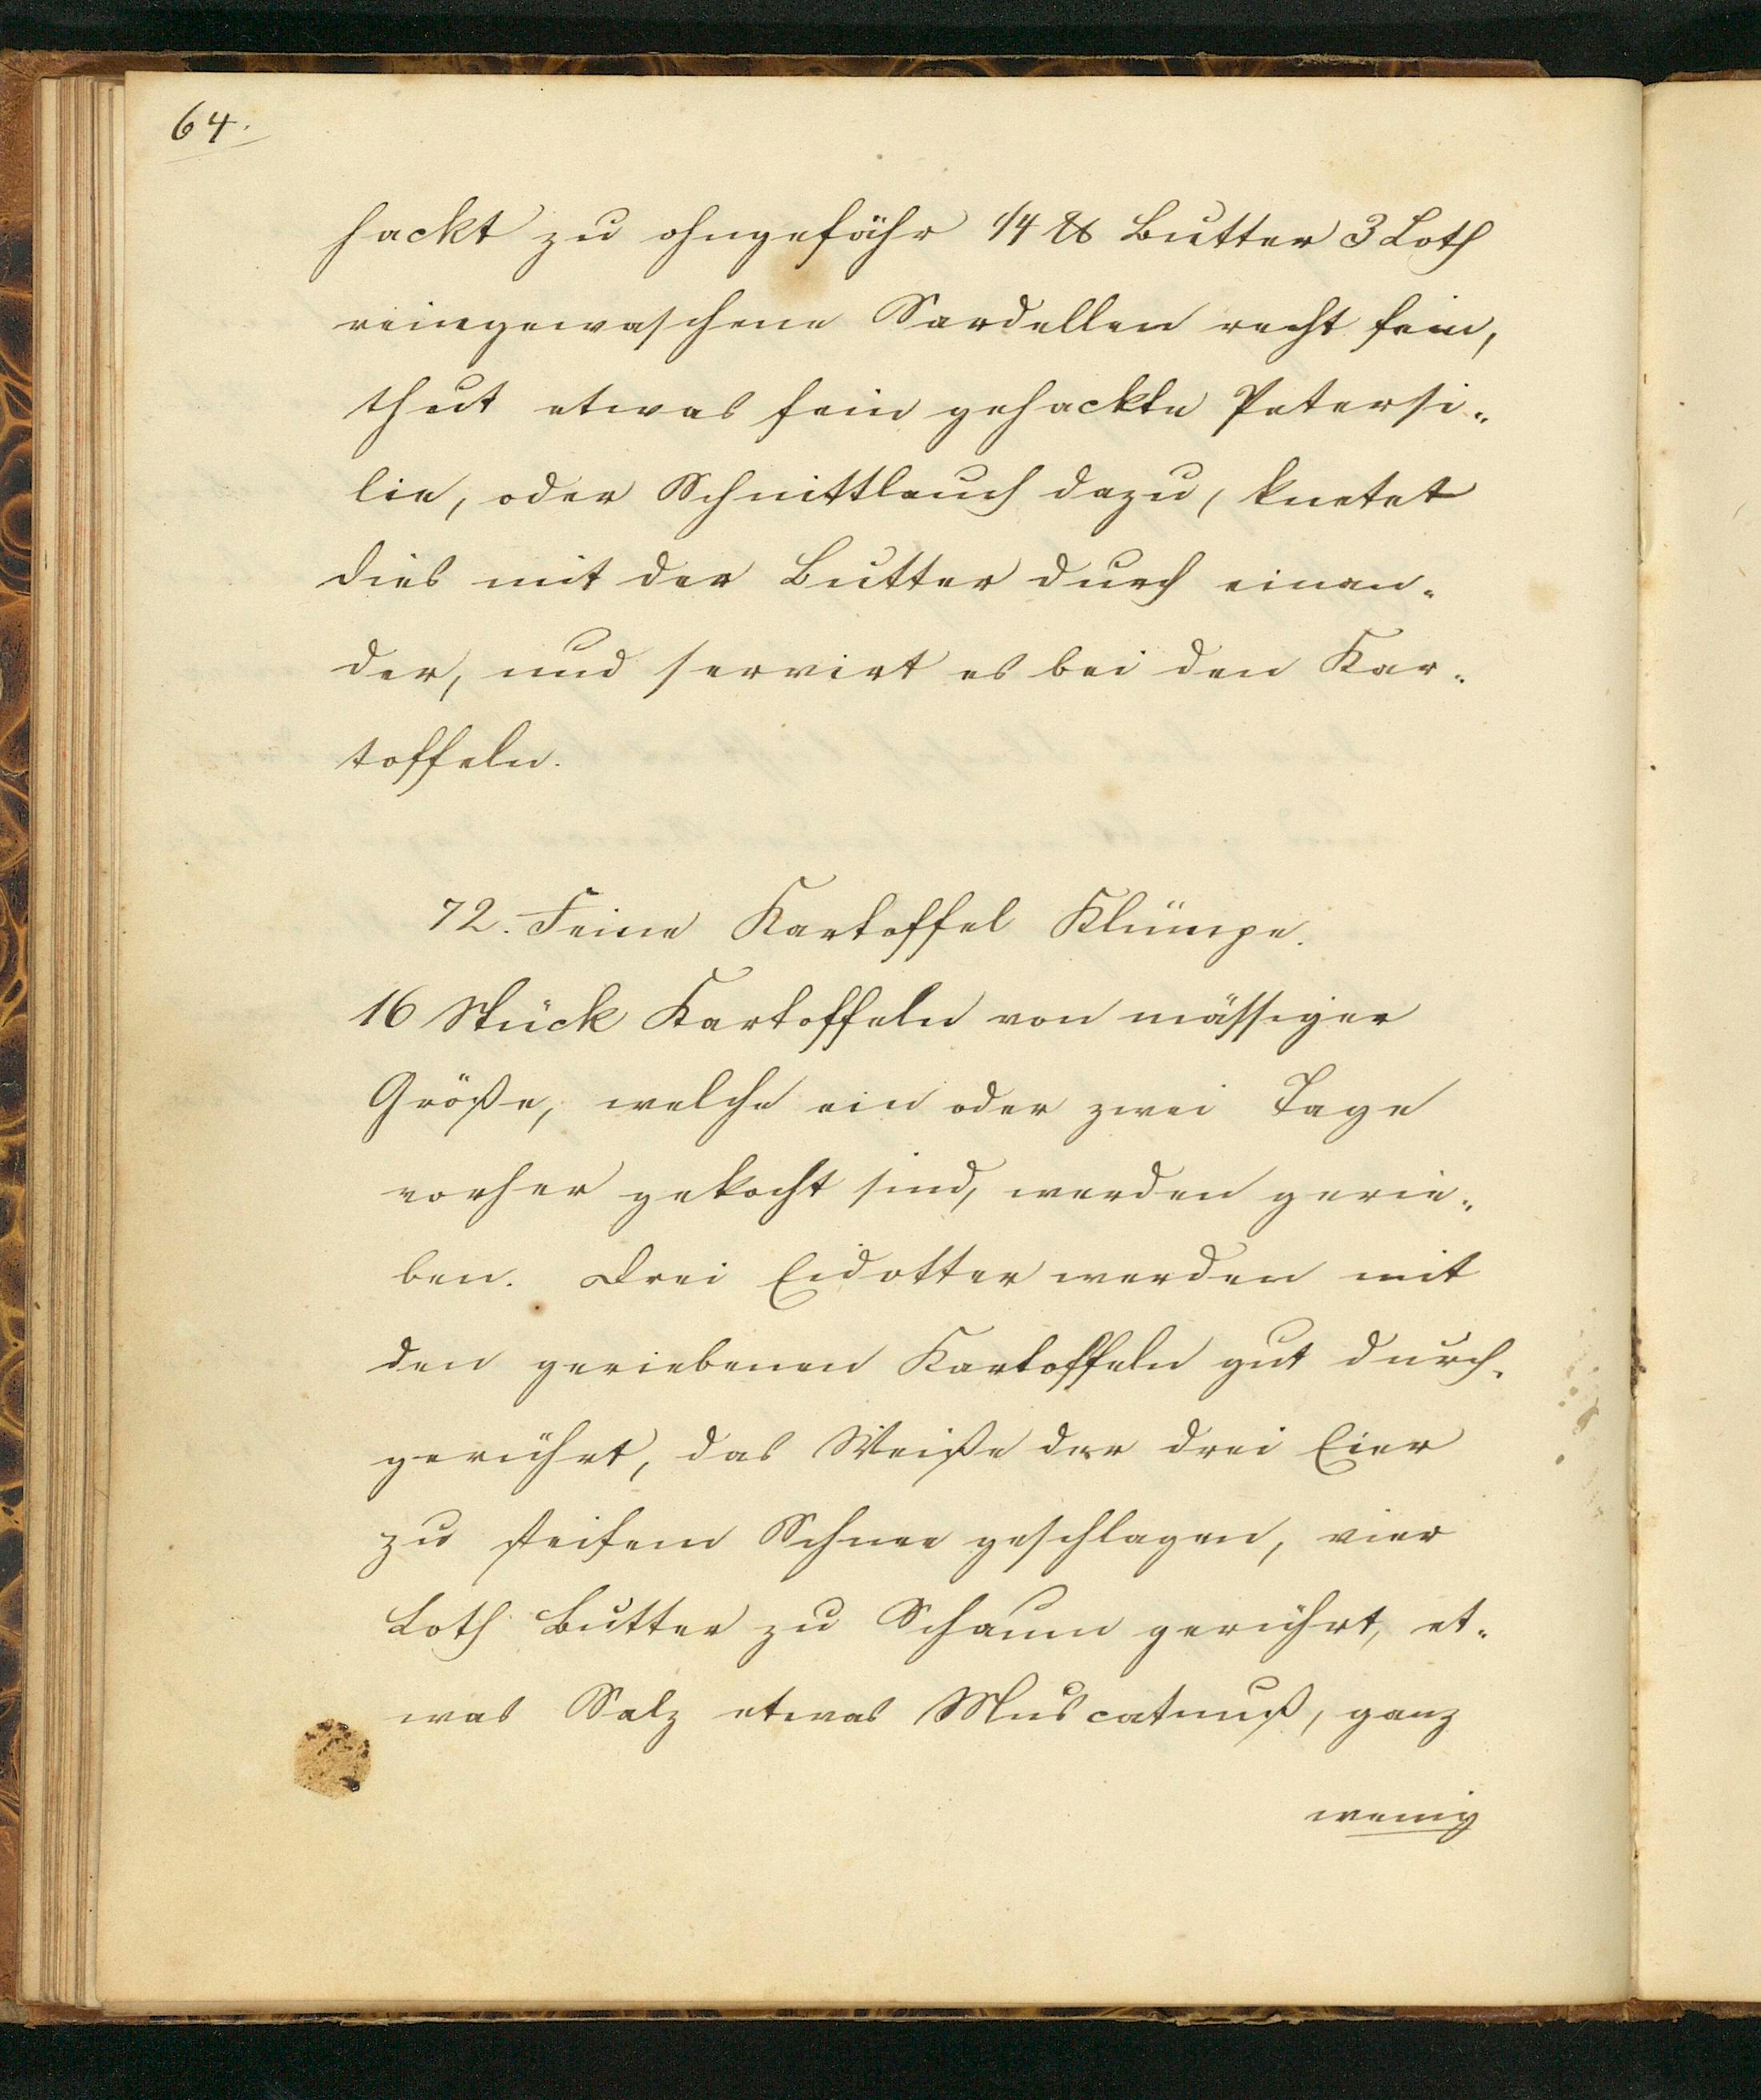 64.
hackt zu ohngefähr 1/4 ℔ Butter 3 Loth
reingewaschene Sardellen recht fein,
thut etwas fein gehackte Petersi„
lie, oder Schnittlauch dazu, knetet
dies mit der Butter durch einan„
der, und servirt es bei den Kar„
toffeln.
72. Feine Kartoffel Klümpe.
16 Stück Kartoffeln von mässiger
Größe, welche ein oder zwei Tage
vorher gekocht sind, werden gerie„
ben. Drei Eidotter werden mit
den geriebenen Kartoffeln gut durch„
gerührt, das Weiße der drei Eier
zu steifem Schnee geschlagen, vier
Loth Butter zu Schaum gerührt, et„
was Salz etwas Muscatnuß, ganz
wenig